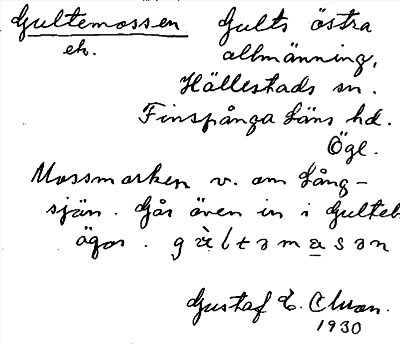 Gultemossen Gults östra
ek. allmänning,
Hällestads sn.
Finspånga läns hd.
Ögl.
Mossmarken v. om Lång-
sjön. Går även in i Gulteb
ägor. gùltəmasən
Gustaf E.
1930